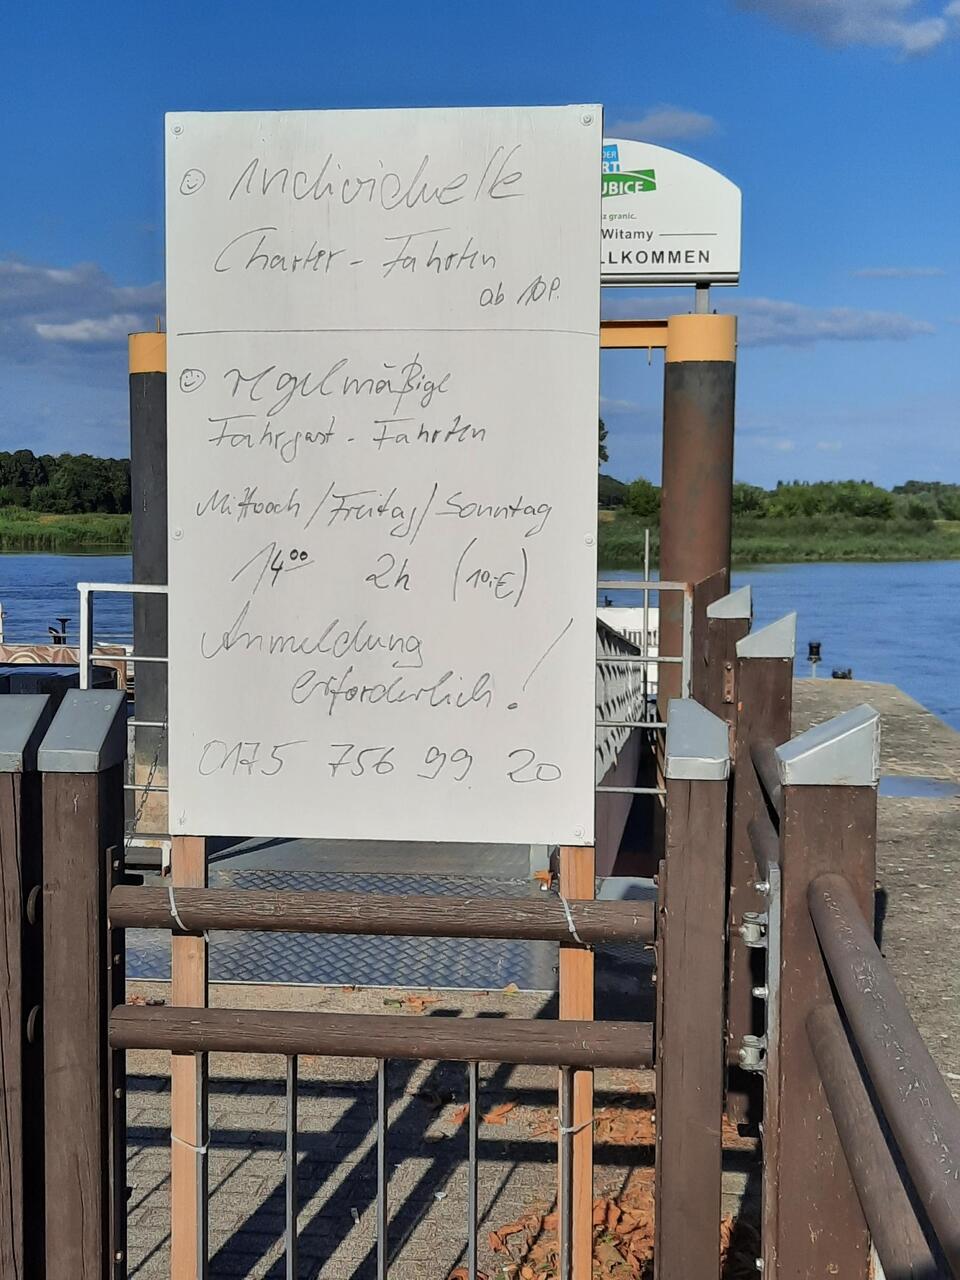 ☺ Individuelle
Charter - Fahrten
ab 10 P.
☺ regelmäßige
Fahrgast - Fahrten
Mittwoch / Freitag / Sonntag
14⁰⁰ 2h (10,-€)
Anmeldung
erforderlich!
0175 756 99 20
DER
RT
UBICE
z granic.
Witamy
LLKOMMEN